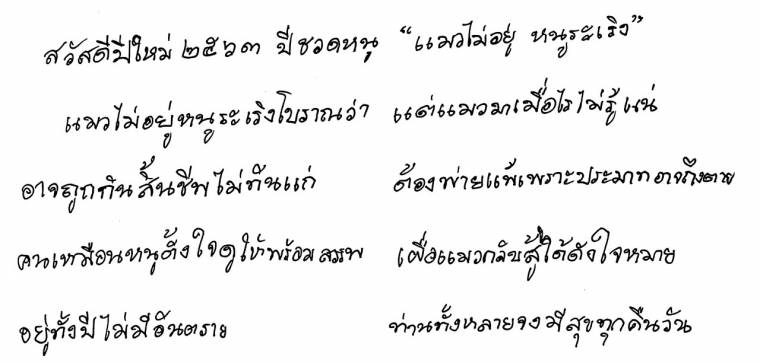 สวัสดีปีใหม่ ๒๕๖๓ ปีชวดหนู “แมวไม่อยู่ หนูระเริง”
แมวไม่อยู่หนูระเริงโบราณว่า แต่แมวมาเมื่อไรไม่รู้แน่
อาจถูกกินสิ้นชีพไม่ทันแก่ ต้องพ่ายแพ้เพราะประมาทอาจถึงตาย
คนเหมือนหนูตั้งใจดูให้พร้อมสรรพ เผื่อแมวกลับสู้ได้ดังใจหมาย
อยู่ทั้งปีไม่มีอันตราย ท่านทั้งหลายจงมีสุขทุกคืนวัน